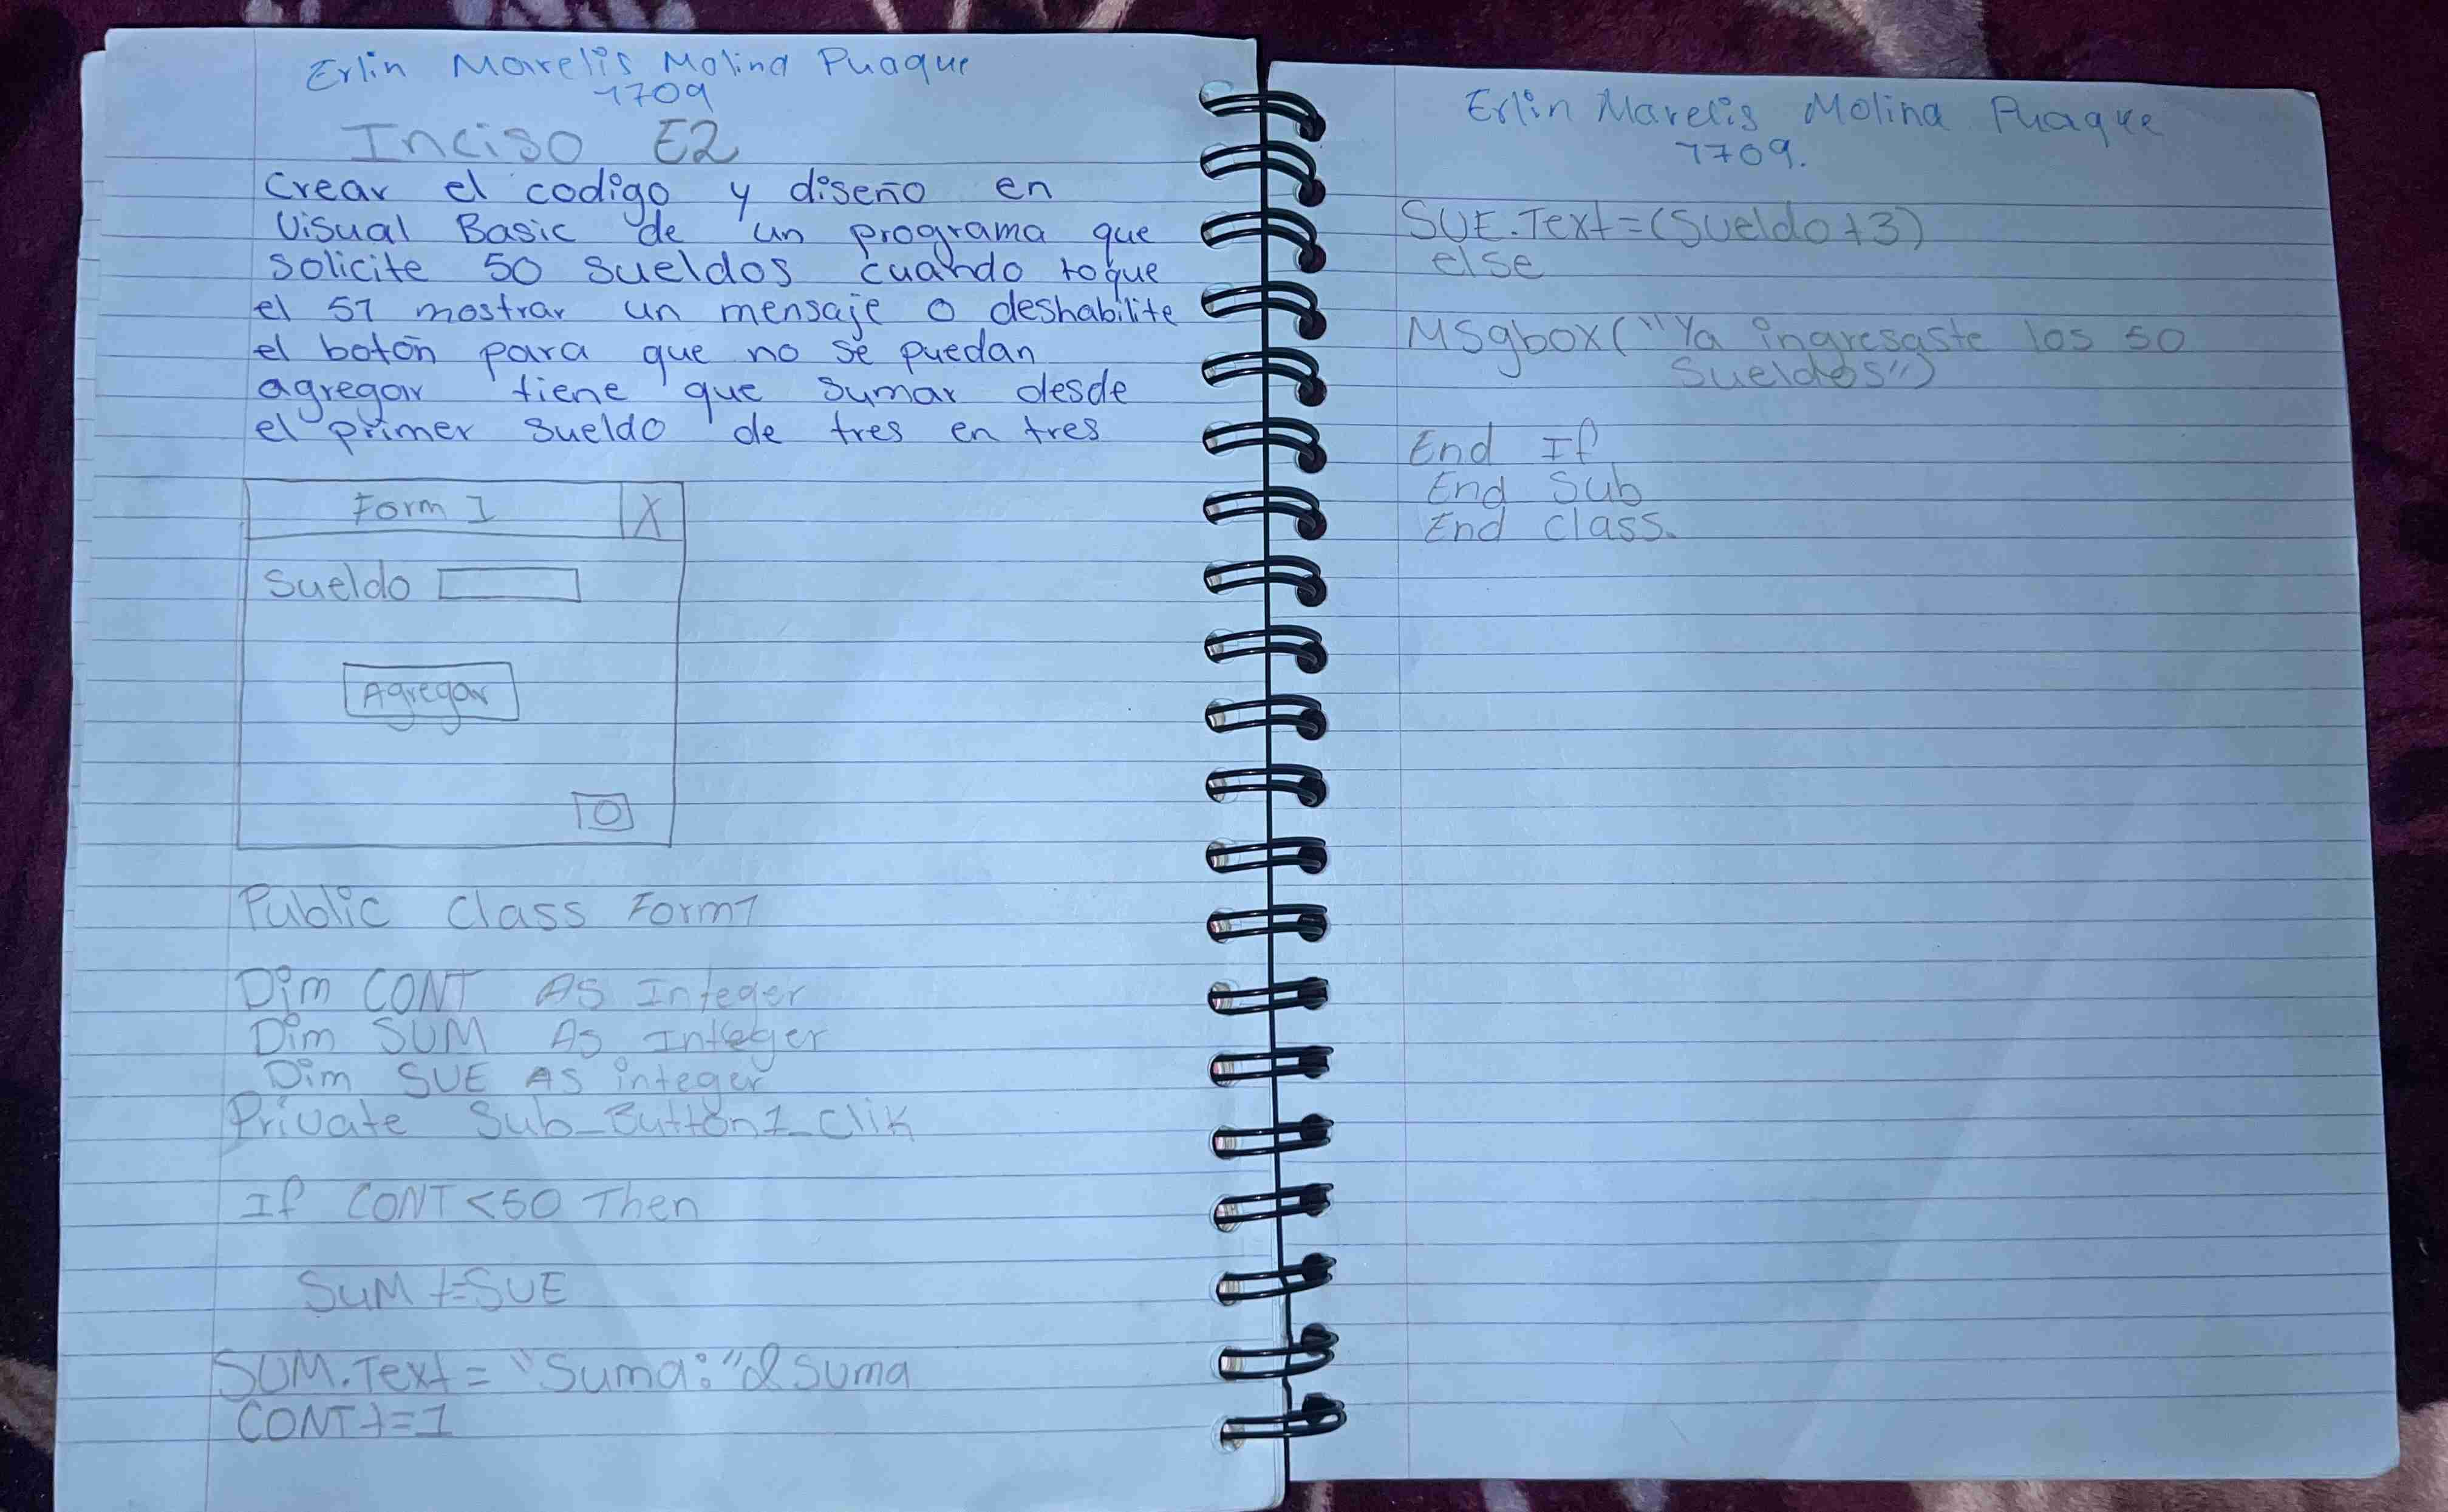 Erlin Marelis Molina Puaque
1709
Inciso E2
crear el codigo y diseño en
Visual Basic de un programa que
solicite 50 sueldos cuando toque
el 51 mostrar un mensaje o deshabilite
el botón para que no se puedan
agregar tiene que sumar desde
el primer sueldo de tres en tres
Form 1 X
Sueldo
Agregar
O
Public Class Form1
Dim CONT AS Integer
Dim SUM As Integer
Dim SUE AS integer
Private Sub_Button1_Clik
If CONT<50 Then
SUM+=SUE
SUM.Text= "Suma:"&suma
CONT+=1
Erlin Marelis Molina Puaque
1709.
SUE.Text=(Sueldo+3)
else
MSgbox("Ya ingresaste los 50
Sueldos")
End If
End Sub
End Class.